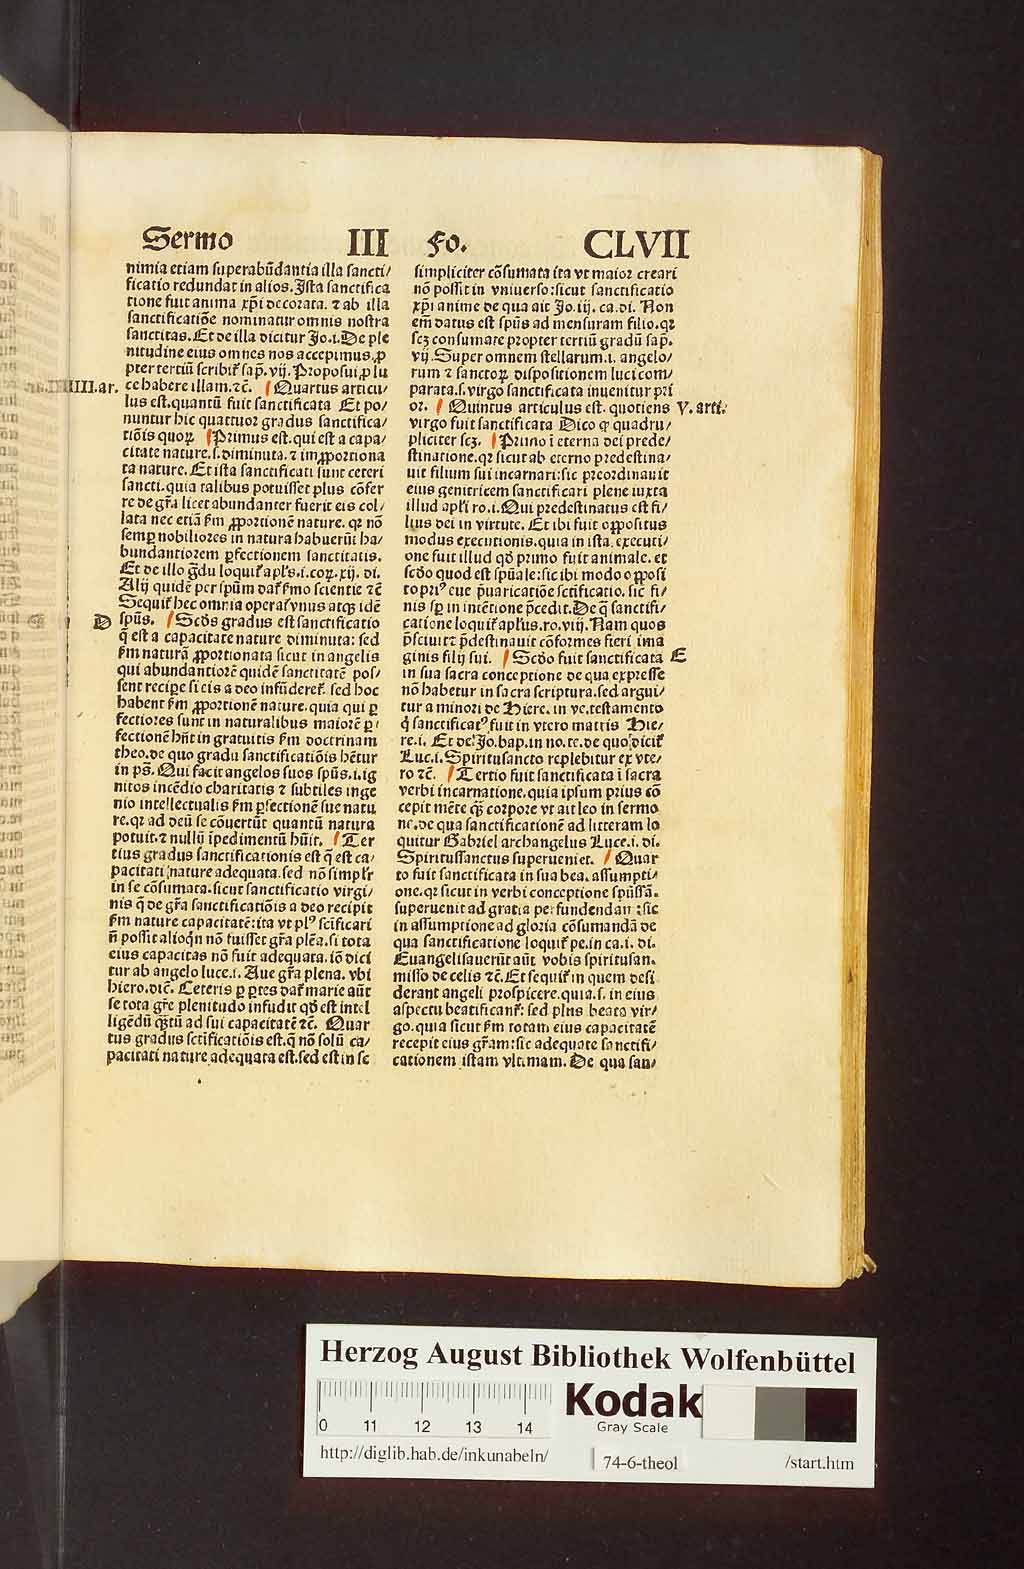 Sermo III Fo. CLVII
nimia etiam superabūdantia illa sancti/
ficatio redundat in alios. Ista sanctifica
tione fuit anima xp̄i decorata. ⁊ ab illa
sanctificatiōe nominatur omnis nostra
sanctitas. Et de illa dicitur Jo. i. De ple
nitudine eius omnes nos accepimus. ꝓ
pter tertiū scribit̄ sap̄. vij. Proposui ꝓ lu
IIII. ar.
ce habere illam. ⁊c̄. Quartus articu/
lus est. quantū fuit sanctificata Et po/
nuntur hic quattuor gradus sanctifica/
tiōis quoꝝ Primus est. qui est a capa/
citate nature. s. diminuta. ⁊ imꝓportiona
ta nature. Et ista sanctificati sunt ceteri
sancti. quia talibus potuisset plus cōfer
re de gr̄a licet abundanter fuerit eis col/
lata nec etiā ẜm ꝓportionē nature. qꝛ nō
semꝑ nobiliores in natura habuerūt ha/
bundantiorem ꝑfectionem sanctitatis.
Et de illo ḡdu loquit̄ apl̄s. i. coꝝ. xij. di.
Alij quidē per spūm dat̄ ẜmo scientie ⁊c̄
Sequit̄ hec omnia operat̄ vnus atqꝫ idē
D
spūs. Scd̄s gradus est sanctificatio
q̄ est a capacitate nature diminuta: sed
ẜm naturā ꝓportionata sicut in angelis
qui abundantiorē quidē sanctitatē pos/
sent recipe si eis a deo infūderet̄. sed hoc
habent ẜm ꝓportionē nature. quia qui ꝑ
fectiores sunt in naturalibus maiorē ꝑ/
fectionē hn̄t in gratuitis ẜm doctrinam
theo. de quo gradu sanctificatiōis hētur
in ps̄. Qui facit angelos suos spūs. i. ig
nitos incēdio charitatis ⁊ subtiles inge
nio intellectualis ẜm ꝑfectionē sue natu
re. qꝛ ad deū se cōuertūt quantū natura
potuit. ⁊ nullū īpedimentū hūit. Ter
tius gradus sanctificationis est q̄ est ca/
pacitati nature adequata. sed nō simplr̄
in se cōsumata. sicut sanctificatio virgi/
nis q̄ de gr̄a sanctificatiōis a deo recipit
ẜm nature capacitatē: ita vt plꝰ scīficari
n̄ possit alioqn̄ nō fuisset gr̄a plēa. si tota
eius capacitas nō fuit adequata. iō dici
tur ab angelo luce. i. Aue gr̄a plena. vbi
hiero. dic̄. Ceteris ꝑ ꝑtes dat̄ marie aūt
se tota gr̄e plenitudo infudit qd̄ est intel
ligēdū qͣꝫtū ad sui capacitatē ⁊c̄. Quar
tus gradus scīficatiōis est. q̄ nō solū ca/
pacitati nature adequata est. sed est in se
simpliciter cōsumata ita vt maior creari
nō possit in vniuerso: sicut sanctificatio
xp̄i anime de qua ait Jo. iij. ca. di. Non
em̄ datus est spūs ad mensuram filio. qꝛ
scꝫ consumare propter tertiū gradū sap̄.
vij. Super omnem stellarum. i. angelo/
rum ⁊ sanctoꝝ dispositionem luci com/
parata. s. virgo sanctificata inuenitur pri
or. Quintus articulus est. quotiens V. arti.
virgo fuit sanctificata Dico ꝙ quadru/
pliciter scꝫ. Primo ī eterna dei prede/
stinatione. qꝛ sicut ab eterno predestina/
uit filium sui incarnari: sic preordinauit
eius genitricem sanctificari plene iuxta
illud apl̄i ro. i. Qui predestinatus est fi/
lius dei in virtute. Et ibi fuit oppositus
modus executionis. quia in ista executi/
one fuit illud qd̄ primo fuit animale. et
scd̄o quod est spūale: sic ibi modo opposi
to priꝰ eue p̄uaricatiōe scīficatio. sic fi/
nis sꝑ in intētione p̄cedit. De q̄ sanctifi/
catione loquit̄ apl̄us. ro. viij. Nam quos
p̄sciuit ⁊ p̄destinauit cōformes fieri ima
ginis filij sui. Scd̄o fuit sanctificata E
in sua sacra conceptione de qua expresse
nō habetur in sacra scriptura. sed argui/
tur a minori de Hiere. in ve. testamento
q̄ sanctificatꝰ fuit in vtero matris Hie/
re. i. Et de Jo. bap. in no. te. de quo dicit̄
Luc. i. Spiritusancto replebitur ex vte/
ro ⁊c̄. Tertio fuit sanctificata ī sacra
verbi incarnatione. quia ipsum prius cō
cepit mēte qͣꝫ corpore vt ait leo in sermo
ne. de qua sanctificationē ad litteram lo
quitur Gabriel archangelus Luce. i. di.
Spiritussanctus superueniet. Quar
to fuit sanctificata in sua bea. assumpti/
one. qꝛ sicut in verbi conceptione spūssā.
superuenit ad gratia perfundendam: sic
in assumptione ad gloria cōsumandā de
qua sanctificatione loquit̄ pe. in ca. i. di.
Euangelisauerūt aūt vobis spiritusan.
misso de celis ⁊c̄. Et sequit̄ in quem desi
derant angeli prospicere. quia. s. in eius
aspectu beatificant̄: sed plus beata vir/
go. quia sicut ẜm totam eius capacitatē
recepit eius gr̄am: sic adequate sanctifi/
cationem istam vltimam. De qua san/
Herzog August Bibliothek Wolfenbüttel
Kodak
Gray Scale
0 11 12 13 14
http://diglib.hab.de/inkunabeln/ 74-6-theol /start.htm